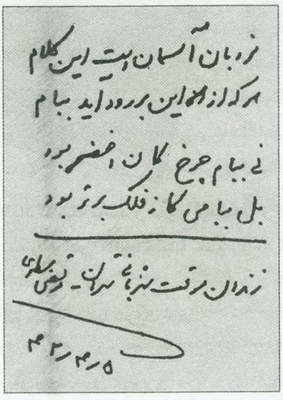 نردبان آسمان است این کلام
هر که از این بر رود آید ببام
نی ببام چرخ کان اخضر بود
بل ببامی کز فلک برتر بود
زندان موقت شهربانی تهران - مرتضی مطهری
۴۲ر۴ر۵